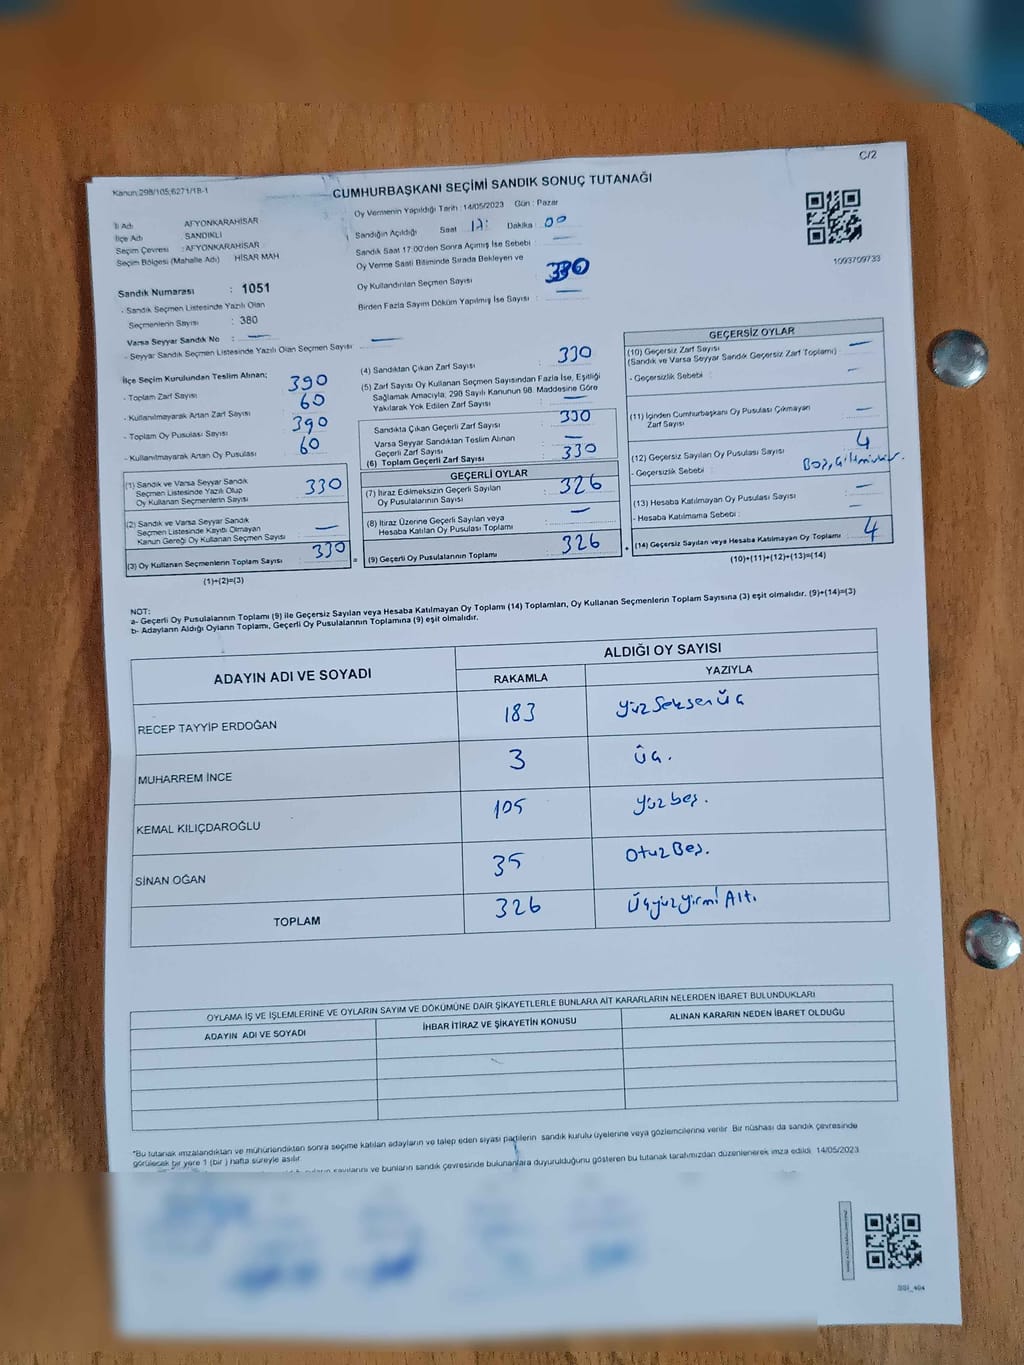 C/2
Kanun:298/105;6271/18-1
CUMHURBAŞKANI SEÇİMİ SANDIK SONUÇ TUTANAĞI
İl Adı AFYONKARAHİSAR
İlçe Adı SANDIKLI
Seçim Çevresi : AFYONKARAHİSAR
Seçim Bölgesi (Mahalle Adı) HİSAR MAH
Oy Vermenin Yapıldığı Tarih : 14/05/2023 Gün : Pazar
Sandığın Açıldığı Saat 17: Dakika : 00
Sandık Saat 17:00'den Sonra Açımış İse Sebebi : —
Oy Verme Saati Bitiminde Sırada Bekleyen ve
Oy Kullandırılan Seçmen Sayısı
Birden Fazla Sayım Döküm Yapılmış İse Sayısı : —
1093709733
Sandık Numarası : 1051
- Sandık Seçmen Listesinde Yazılı Olan
Seçmenlerin Sayısı : 380
Varsa Seyyar Sandık No : —
- Seyyar Sandık Seçmen Listesinde Yazılı Olan Seçmen Sayısı —
İlçe Seçim Kurulundan Teslim Alınan;
- Toplam Zarf Sayısı 390
- Kullanılmayarak Artan Zarf Sayısı 60
- Toplam Oy Pusulası Sayısı 390
- Kullanılmayarak Artan Oy Pusulası 60
(1) Sandık ve Varsa Seyyar Sandık
Seçmen Listesinde Yazılı Olup
Oy Kullanan Seçmenlerin Sayısı 330
(2) Sandık ve Varsa Seyyar Sandık
Seçmen Listesinde Kayıtlı Olmayan
Kanun Gereği Oy Kullanan Seçmen Sayısı : —
(3) Oy Kullanan Seçmenlerin Toplam Sayısı 330
(1)+(2)=(3)
(4) Sandıktan Çıkan Zarf Sayısı 330
(5) Zarf Sayısı Oy Kullanan Seçmen Sayısından Fazla İse, Eşitliği
Sağlamak Amacıyla, 298 Sayılı Kanunun 98. Maddesine Göre
Yakılarak Yok Edilen Zarf Sayısı —
Sandıkta Çıkan Geçerli Zarf Sayısı 330
Varsa Seyyar Sandıktan Teslim Alınan
Geçerli Zarf Sayısı —
(6) Toplam Geçerli Zarf Sayısı 330
GEÇERLİ OYLAR
(7) İtiraz Edilmeksizin Geçerli Sayılan
Oy Pusulalarının Sayısı 326
(8) İtiraz Üzerine Geçerli Sayılan veya
Hesaba Katılan Oy Pusulası Toplamı —
= (9) Geçerli Oy Pusulalarının Toplamı 326
GEÇERSİZ OYLAR
(10) Geçersiz Zarf Sayısı
(Sandık ve Varsa Seyyar Sandık Geçersiz Zarf Toplamı) —
- Geçersizlik Sebebi : —
(11) İçinden Cumhurbaşkanı Oy Pusulası Çıkmayan
Zarf Sayısı —
(12) Geçersiz Sayılan Oy Pusulası Sayısı 4
- Geçersizlik Sebebi : Boş,
(13) Hesaba Katılmayan Oy Pusulası Sayısı —
- Hesaba Katılmama Sebebi : —
(14) Geçersiz Sayılan veya Hesaba Katılmayan Oy Toplamı 4
(10)+(11)+(12)+(13)=(14)
NOT:
a- Geçerli Oy Pusulalarının Toplamı (9) ile Geçersiz Sayılan veya Hesaba Katılmayan Oy Toplamı (14) Toplamları, Oy Kullanan Seçmenlerin Toplam Sayısına (3) eşit olmalıdır. (9)+(14)=(3)
b- Adayların Aldığı Oyların Toplamı, Geçerli Oy Pusulalarının Toplamına (9) eşit olmalıdır.
ADAYIN ADI VE SOYADI ALDIĞI OY SAYISI
RAKAMLA YAZIYLA
RECEP TAYYİP ERDOĞAN 183 yüzSeksenüç
MUHARREM İNCE 3 üç.
KEMAL KILIÇDAROĞLU 105 yüzbeş.
SİNAN OĞAN 35 OtuzBeş.
TOPLAM 326 ÜçyüzyirmiAltı
OYLAMA İŞ VE İŞLEMLERİNE VE OYLARIN SAYIM VE DÖKÜMÜNE DAİR ŞİKAYETLERLE BUNLARA AİT KARARLARIN NELERDEN İBARET BULUNDUKLARI
ADAYIN ADI VE SOYADI İHBAR İTİRAZ VE ŞİKAYETİN KONUSU ALINAN KARARIN NEDEN İBARET OLDUĞU
*Bu tutanak imzalandıktan ve mühürlendikten sonra seçime katılan adayların ve talep eden siyasi partilerin sandık kurulu üyelerine veya gözlemcilerine verilir. Bir nüshası da sandık çevresinde
görülecek bir yere 1 (bir ) hafta süreyle asılır.
sayılarını ve bunların sandık çevresinde bulunanlara duyurulduğunu gösteren bu tutanak tarafımızdan düzenlenerek imza edildi. 14/05/2023